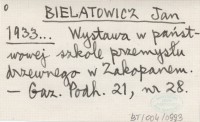 BIELATOWICZ Jan
1933... Wystawa w państ-
wowej szkole przemysłu
drzewnego w Zakopanem.
— Gaz. Podh. 21, nr 28.